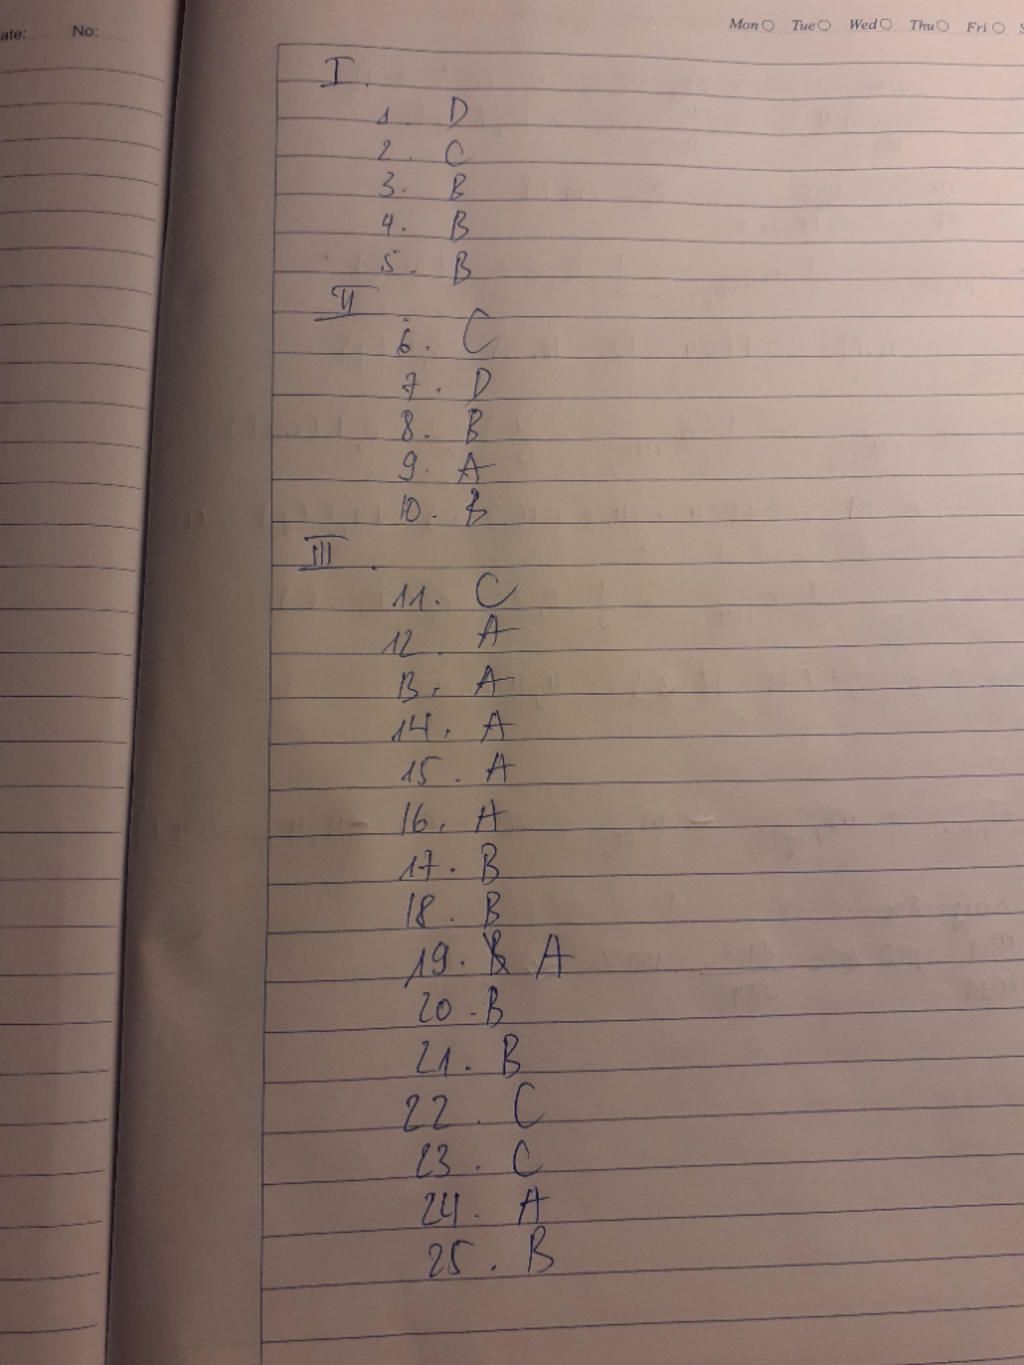 ate: No:
Mon Tue Wed Thu Fri S
I.
1. D
2. C
3. B
4. B
5. B
II
6. C
7. D
8. B
9. A
10. B
III.
11. C
12. A
13. A
14. A
15. A
16. A
17. B
18. B
19. B A
20. B
21. B
22. C
23. C
24. A
25. B